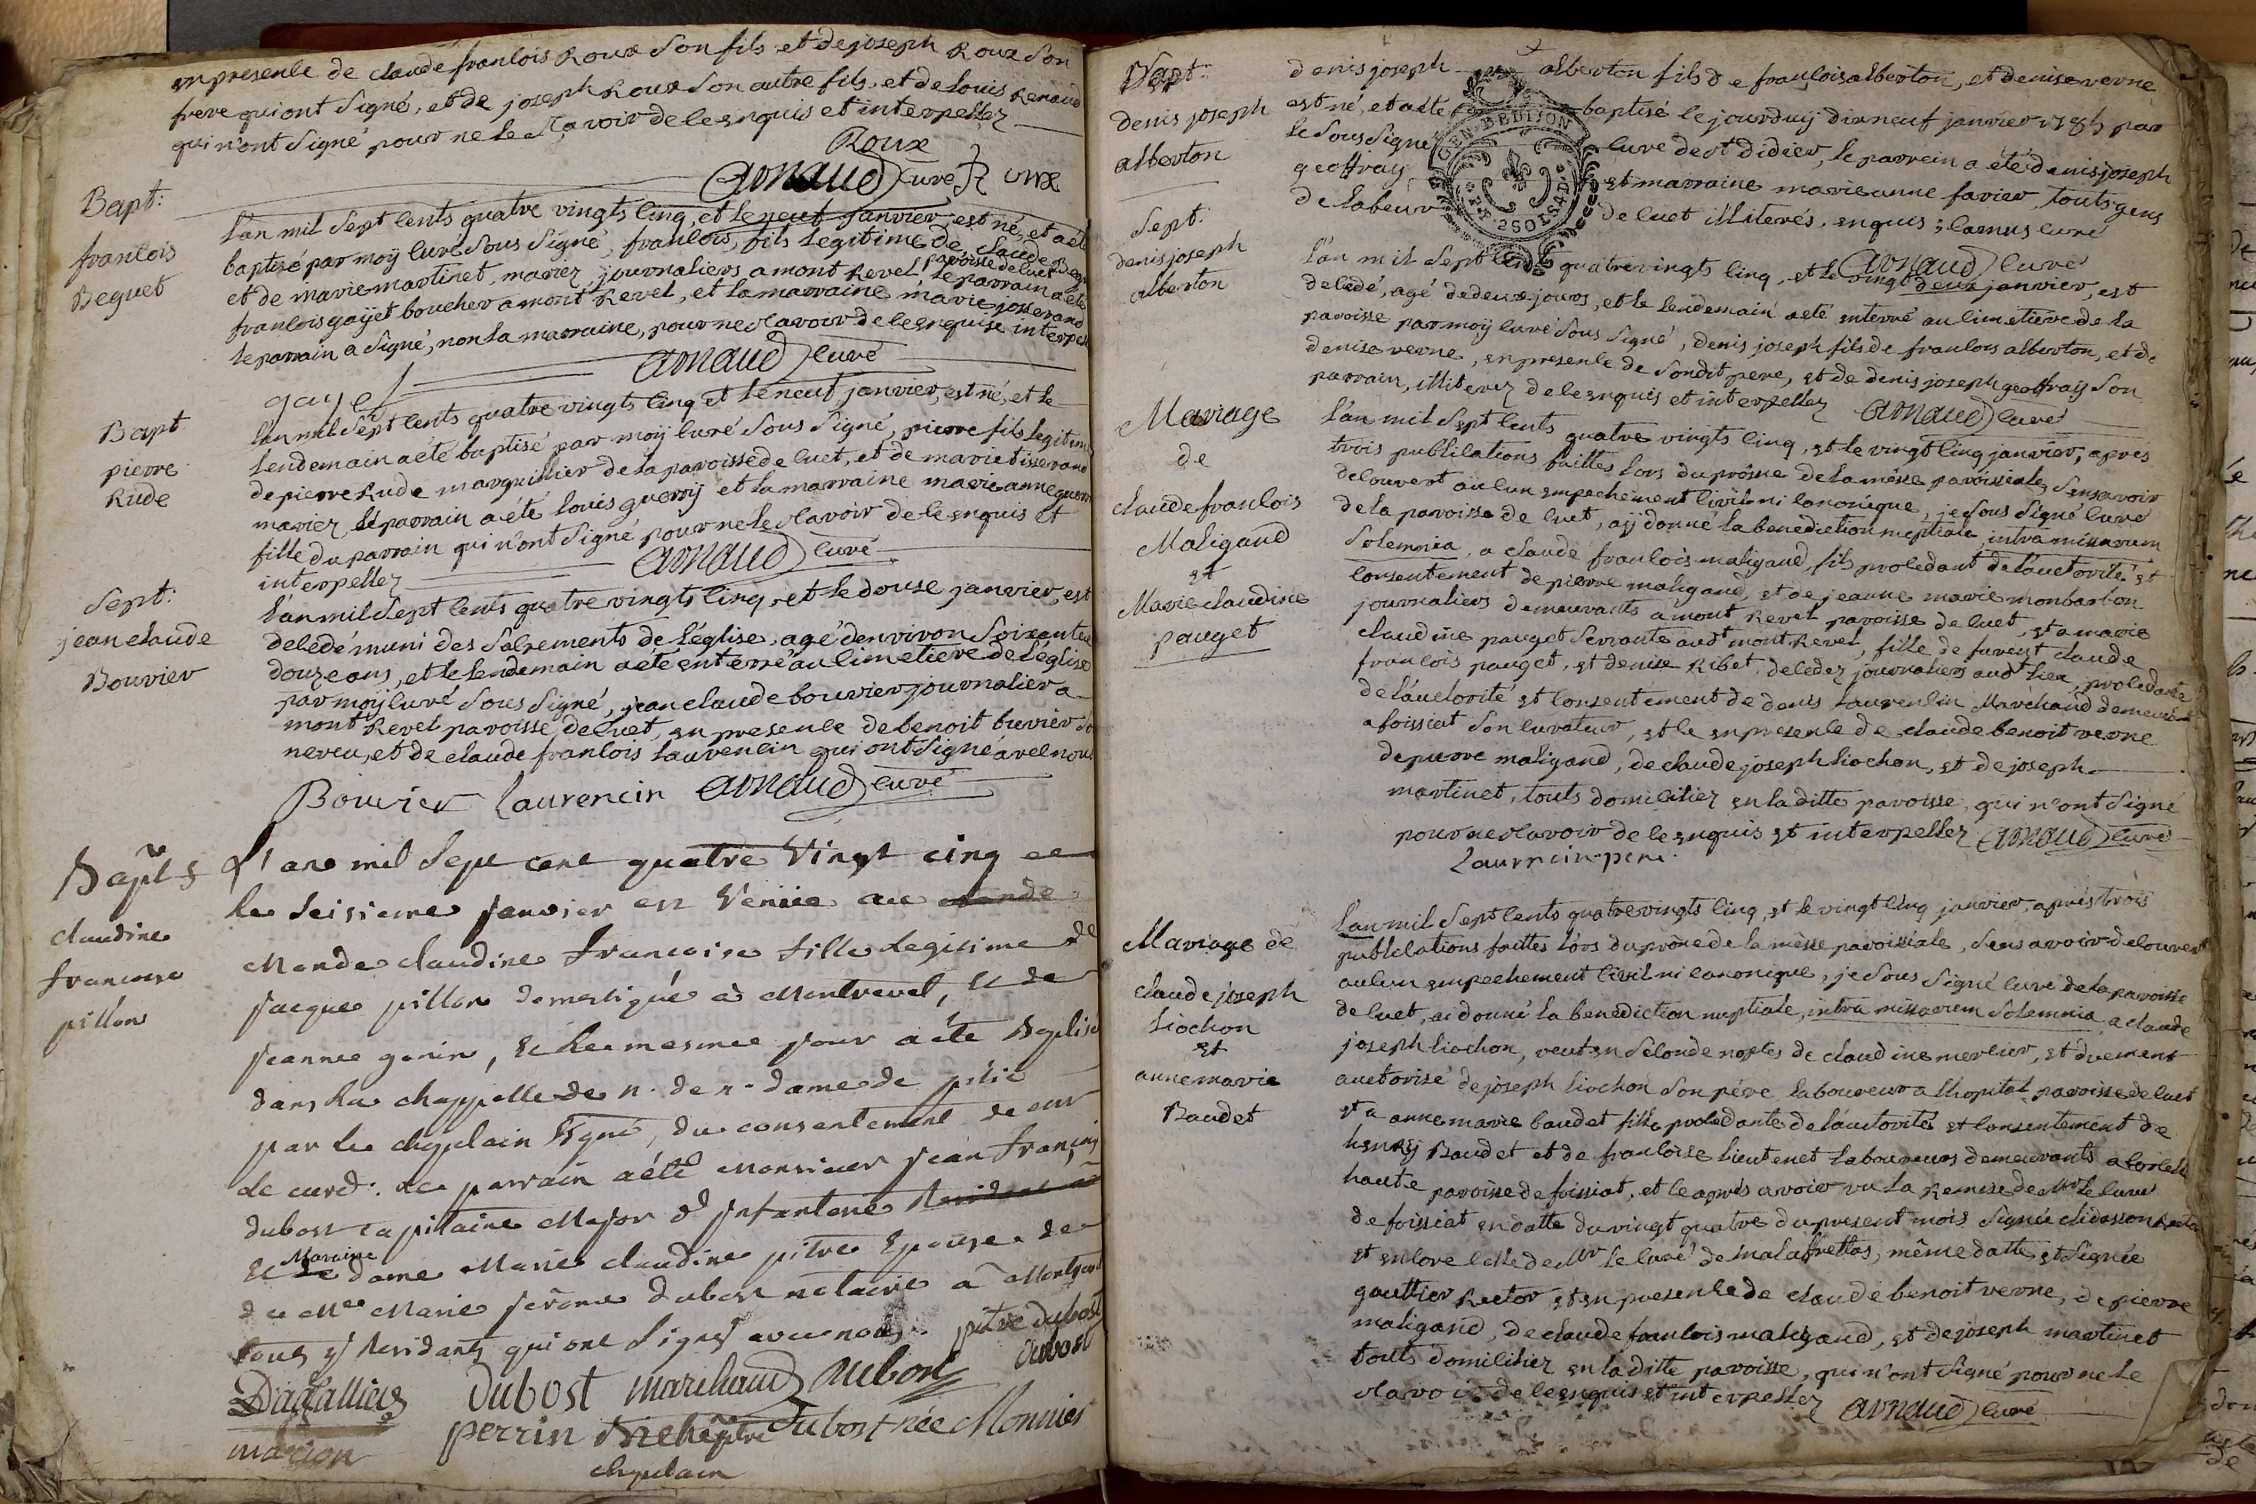 en presence de claude francois Roux Son fils et de joseph Roux Son
frere qui ont Signé, et de joseph Roux Son autre fils, et de louis Renaud
qui n'ont Signé pour ne le Scavoir de ce enquis et interpellez
Roux
arnaud curé Roux
Bapt:
francois
Beguet
L'an mil Sept cents quatre vingts cinq, et le neuf janvier, est né, et a eté
baptisé par moÿ curé Sous Signé, francois, fils legitime de Claude
et de marie martinet, mariez, journaliers a mont Revel paroisse de cuet le parrain a eté
francois gaÿet boucher a mont Revel, et la marraine marie josserand
le parrain a Signé, non la marraine, pour ne Scavoir de ce enquise
arnaud curé
gayet
Bapt
pierre
Rude
L'an mil Sept cents quatre vingts cinq et le neuf janvier, est né, et le
lendemain a eté baptisé par moÿ curé Sous Signé, pierre fils legitime
de pierre Rude marguillier de la paroisse de cuet, et de marie tisserand
mariez, le parrain a eté louis guerrÿ et la marraine marie anne
fille du parrain qui n'ont Signé pour ne le Scavoir de ce enquis et
interpellez arnaud curé
Sept:
jean claude
Bouvier
L'an mil Sept cents quatre vingts cinq, et le douse janvier, est
decedé muni des Sacrements de l'église, agé denviron Soixante
douze ans, et le lendemain a eté enterré au cimetiere de l'église
par moÿ curé Sous Signé, jean claude bouvier journalier a
mont Revel paroisse de cuet, en presence de benoit buvier
neveu, et de claude francois laurencin qui ont Signé avec nous
Bouvier Laurencin arnaud curé
Bapt
claudine
francoise
pillon
L'an mil Sept cent quatre Vingt cinq et
le Seisieme janvier est Venüe au
Monde claudine francoise fille legitime de
jacque pillon domestique à Montrevel, et de
jeanne genin, et le mesme jour a été Baptisée
dans la chappelle de n. dame de pitié
par le chapelain signé, du consentement de
le curé. le parrain a été Monsieur jean françois
dubost capitaine Major d'jnfanterie
et Maraine dame Marie claudine pitre Epouse de
de Me Marie jerôme dubost notaire à Montrevel
tous y Residants qui ont Signé avec nous. pitre dubost
Dagallier dubost marchand dubost dubost
marion perrin dubost née Monnier
chapelain
Bapt:
denis joseph
alberton
denis joseph alberton fils de francois alberton, et denise verne
est né, et a eté baptisé le jourduÿ dixneuf janvier 1785 par
le Sous Signé curé de St didier, le parrain a été denis joseph
geoffray et marraine marie anne favier, touts gens
de labeur de cuet illiterés, enquis; Camus curé
GEN. BED IJON
2 SOLS
arnaud curé
Sept:
denis joseph
alberton
L'an mil Sept cents quatre vingts cinq, et le vingt deux janvier, est
decedé, agé de deux jours, et le lendemain a eté enterré au cimetiere de la
paroisse par moÿ curé Sous Signé, denis joseph fils de francois alberton, et de
denise verne, en presence de Sondit pere, et de denis joseph geoffraÿ Son
parrain, illiterez de ce enquis et interpellez arnaud curé
Mariage
de
claude francois
Maligand
et
Marie claudine
pauget
L'an mil Sept cents quatre vingts cinq, et le vingt cinq janvier, apres
trois publications faittes lors du prosne de la mêsse paroissiale, Sens avoir
decouvert aucun empechement civil ni canonique, je Sous Signé curé
de la paroisse de cuet, aÿ donné la benediction nuptiale, intra missarum
Solemnia, a claude francois maligand, fils procedant de l'auctorité et
consentement de pierre maligand, et de jeanne marie monbarbon
journaliers demeurants a mont Revel paroisse de cuet, et a marie
claudine pauget Servante audt mont Revel, fille de furent claude
francois pauget, et denise Ribet decedez journaliers audt lieu, procedante
de l'auctorité et consentement de denis Laurencin Marchand demeurant
a foissiat Son curateur, et ce en presence de claude benoit verne
de pierre maligand, de claude joseph liochon, et de joseph
martinet, touts domicilier en la ditte paroisse, qui n'ont Signé
pour ne Scavoir de ce enquis et interpellez arnaud curé
Laurencin pere
Mariage de
claude joseph
Liochon
et
anne marie
Baudet
L'an mil Sept cents quatre vingts cinq, et le vingt cinq janvier, après trois
publications faittes lors du prône de la mêsse paroissiale, Sens avoir decouvert
aucun empechement civil ni canonique, je Sous Signé curé de la paroisse
de cuet, ai donné la benediction nuptiale, intra missarum Solemnia, a claude
joseph liochon, veuf en Seconde noptes de claudine mercier, et duement
auctorisé de joseph liochon Son pére, laboureur a lhopital paroisse de cuet
et a anne marie baudet fille procedante de l'auctorité et consentement de
henrÿ Baudet et de francoise lieutenet laboureurs demeurants a
haute paroisse de foissiat, et ce après avoir vu la Remise de Mr le curé
de foissiat en datte du vingt quatre du present mois Signée
et encore celle de Mr le curé de malafrettas, même datte et Signée
gauttier Rector et en presence de claude benoit verne, de pierre
maligand, de claude francois maligand, et de joseph martinet
touts domicilier en la ditte paroisse, qui n'ont Signé pour ne le
Scavoir de ce enquis et interpellez arnaud curé